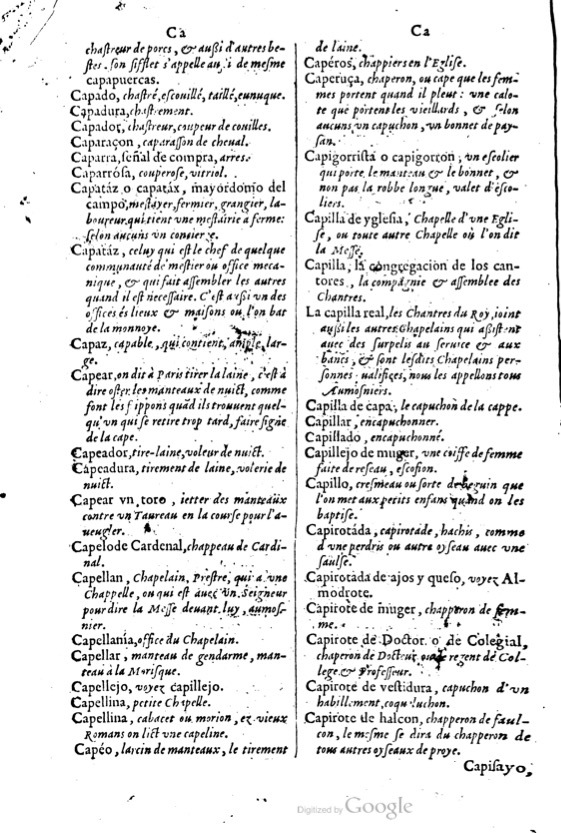 Ca
chastreur de porcs, & aussi d'autres be-
stes. son sifflet s'appelle aussi de mesme
capapuercas.
Capado, chastré, escouillé, taillé, eunuque.
Capadura, chastrement.
Capador, chastreur, coupeur de couilles.
Caparaçon, caparasson de cheual.
Caparra, señal de compra, arres.
Caparrósa, couperose, vitriol.
Capatáz o capatáx, mayordomo del
campo, mestayer, fermier, grangier, la-
boureur qui tient vne mestairie à ferme:
selon aucuns vn concierge.
Capatáz, celuy qui est le chef de quelque
communauté de mestier ou office meca-
nique, & qui fait assembler les autres
quand il est necessaire. C'est aussi vn des
offices és lieux & maisons ou l'on bat
de la monnoye.
Capaz, capable, qui contient, ample, lar-
ge.
Capear, on dit à Paris tirer la laine, c'est à
dire oster les manteaux de nuict, comme
font les frippons quãd ils trouuent quel-
qu'vn qui se retire trop tard, faire signe
de la cape.
Capeador, tire-laine, voleur de nuict.
Capeadura, tirement de laine, volerie de
nuict.
Capear vn toro, ietter des manteaux
contre vn Taureau en la course pour l'a-
ueugler.
Capelo de Cardenal, chappeau de Cardi-
nal.
Capellan, Chapelain, Prestre, qui a vne
Chappelle, ou qui est auec vn Seigneur
pour dire la Messe deuant luy, aumos-
nier.
Capellanía, office du Chapelain.
Capellar, manteau de gendarme, man-
teau à la Morisque.
Capellejo, voyez capillejo.
Capellina, petite Chapelle.
Capellina, cabacet ou morion, ez vieux
Romans on lict vne capeline.
Capéo, larcin de manteaux, le tirement
Ca
de laine.
Capéros, chappiers en l'Eglise.
Caperuça, chaperon, ou cape que les fem-
mes portent quand il pleut: vne calo-
te que portent les vieillards, & selon
aucuns vn capuchon, vn bonnet de pay-
san.
Capigorrista o capigorron, vn escolier
qui porte le manteau & le bonnet, &
non pas la robbe longue, valet d'esco-
liers.
Capilla de yglesia, Chapelle d'vne Egli-
se, ou toute autre Chapelle où l'on dit
la Messe.
Capilla, la congregación de los can-
tores, la compagnie & assemblee des
Chantres.
La capilla real, les Chantres du Roy, ioint
aussi les autres Chapelains qui assistent
auec des surpelis au service & aux
bancs, & sont lesdits Chapelains per-
sonnes qualifiees, nous les appellons tous
Aumosniers.
Capilla de capa, le capuchon de la cappe.
Capillar, encapuchonner.
Capillado, encapuchonné.
Capillejo de muger, vne coiffe de femme
faite de reseau, escofion.
Capillo, cresmeau ou sorte de beguin que
l'on met aux petits enfans quand on les
baptise.
Capirotáda, capirotade, hachis, comme
d'vne perdris ou autre oyseau auec vne
saulse.
Capirotáda de ajos y queso, voyez Al-
modrote.
Capirote de muger, chapperon de fem-
me.
Capirote de Doctor o de Colegial,
chaperon de Docteur ou de regent de Col-
lege & Professeur.
Capirote de vestidura, capuchon d'vn
habillement, coqueluchon.
Capirote de halcon, chapperon de faul-
con, le mesme se dira du chapperon de
tous autres oyseaux de proye.
Capisayo,
Digitized by Google